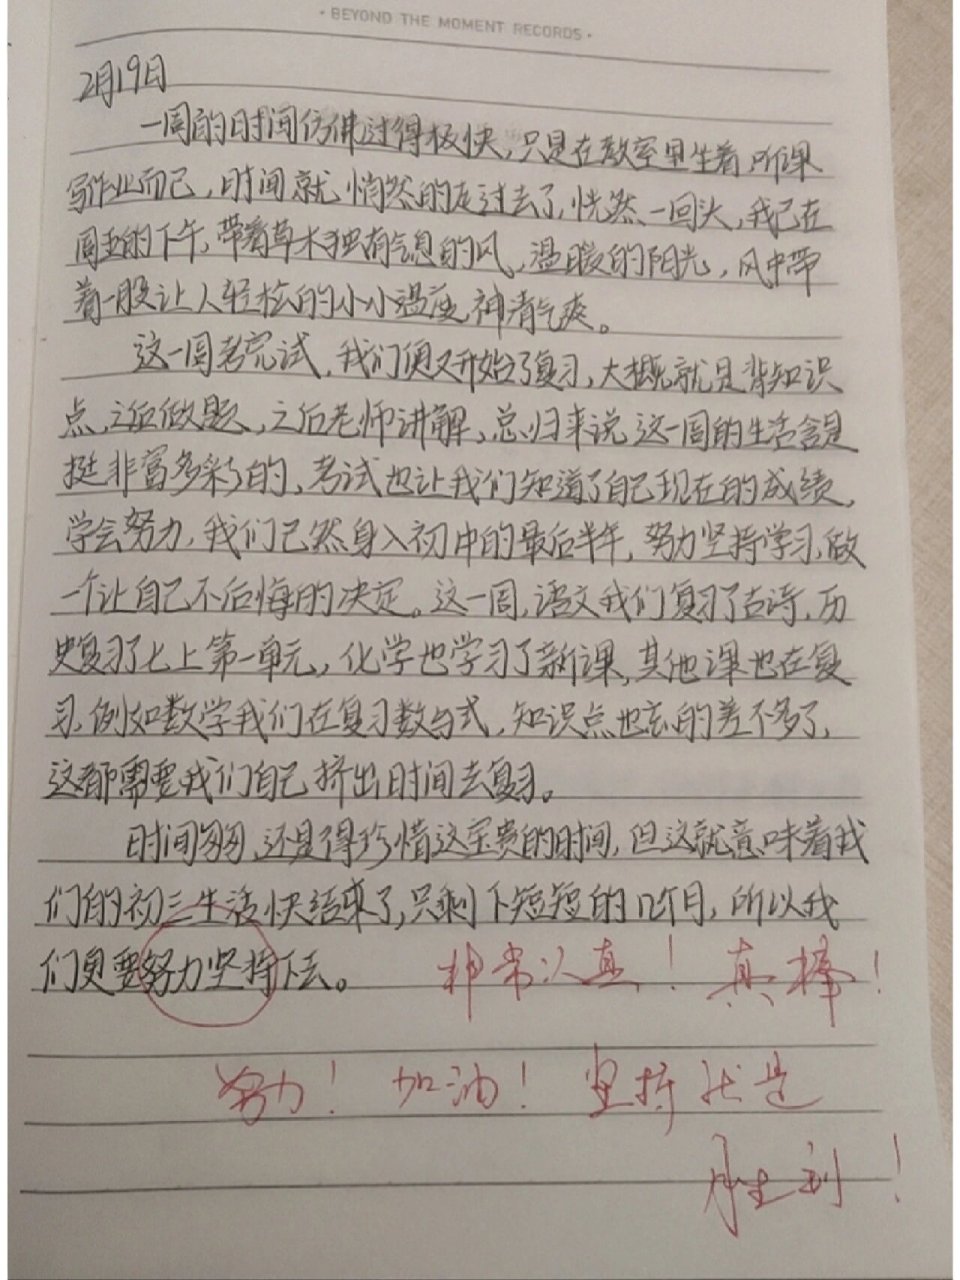 · BEYOND THE MOMENT RECORDS ·
2月19日
一周的时间仿佛过得极快，只是在教室里坐着，听课
写作业而已，时间就悄然的走过去了，恍然一回头，我已在
周五的下午，带着草木独有气息的风，温暖的阳光，风中带
着一股让人轻松的小小温度，神清气爽。
这一周考完试，我们便又开始了复习，大概就是背知识
点，之后做题，之后老师讲解，总归来说这一周的生活含是
挺非富多彩的，考试也让我们知道了自己现在的成绩，
学会努力，我们已然身入初中的最后半年，努力坚持学习，做
一个让自己不后悔的决定。这一周，语文我们复习了古诗，历
史复习了七上第一单元，化学也学习了新课，其他课也在复
习，例如数学我们在复习数与式，知识点也忘的差不多了，
这都需要我们自己挤出时间去复习。
时间匆匆，还是得珍惜这宝贵的时间，但这就意味着我
们的初三生活快结束了，只剩下短短的几个月，所以我
们更要努力坚持下去。 非常认真！真棒！
努力！加油！坚持就是
胜利！